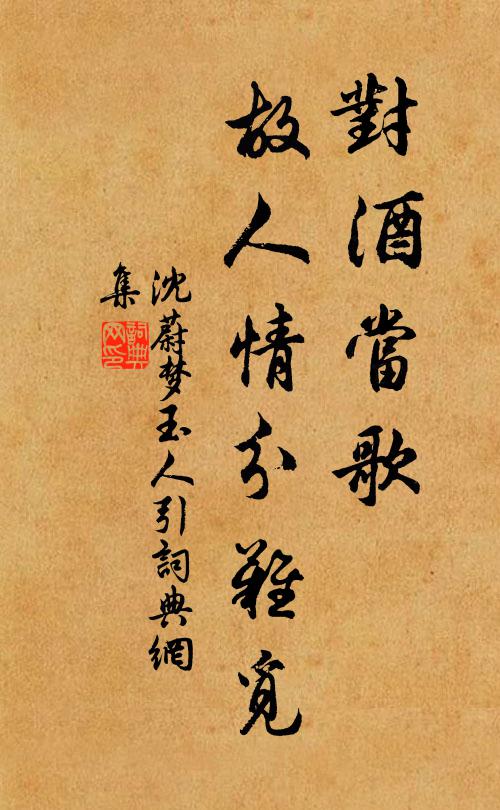 對酒當歌
故人情分難覓
沈蔚梦玉人引詞典網
集
詞典
网印